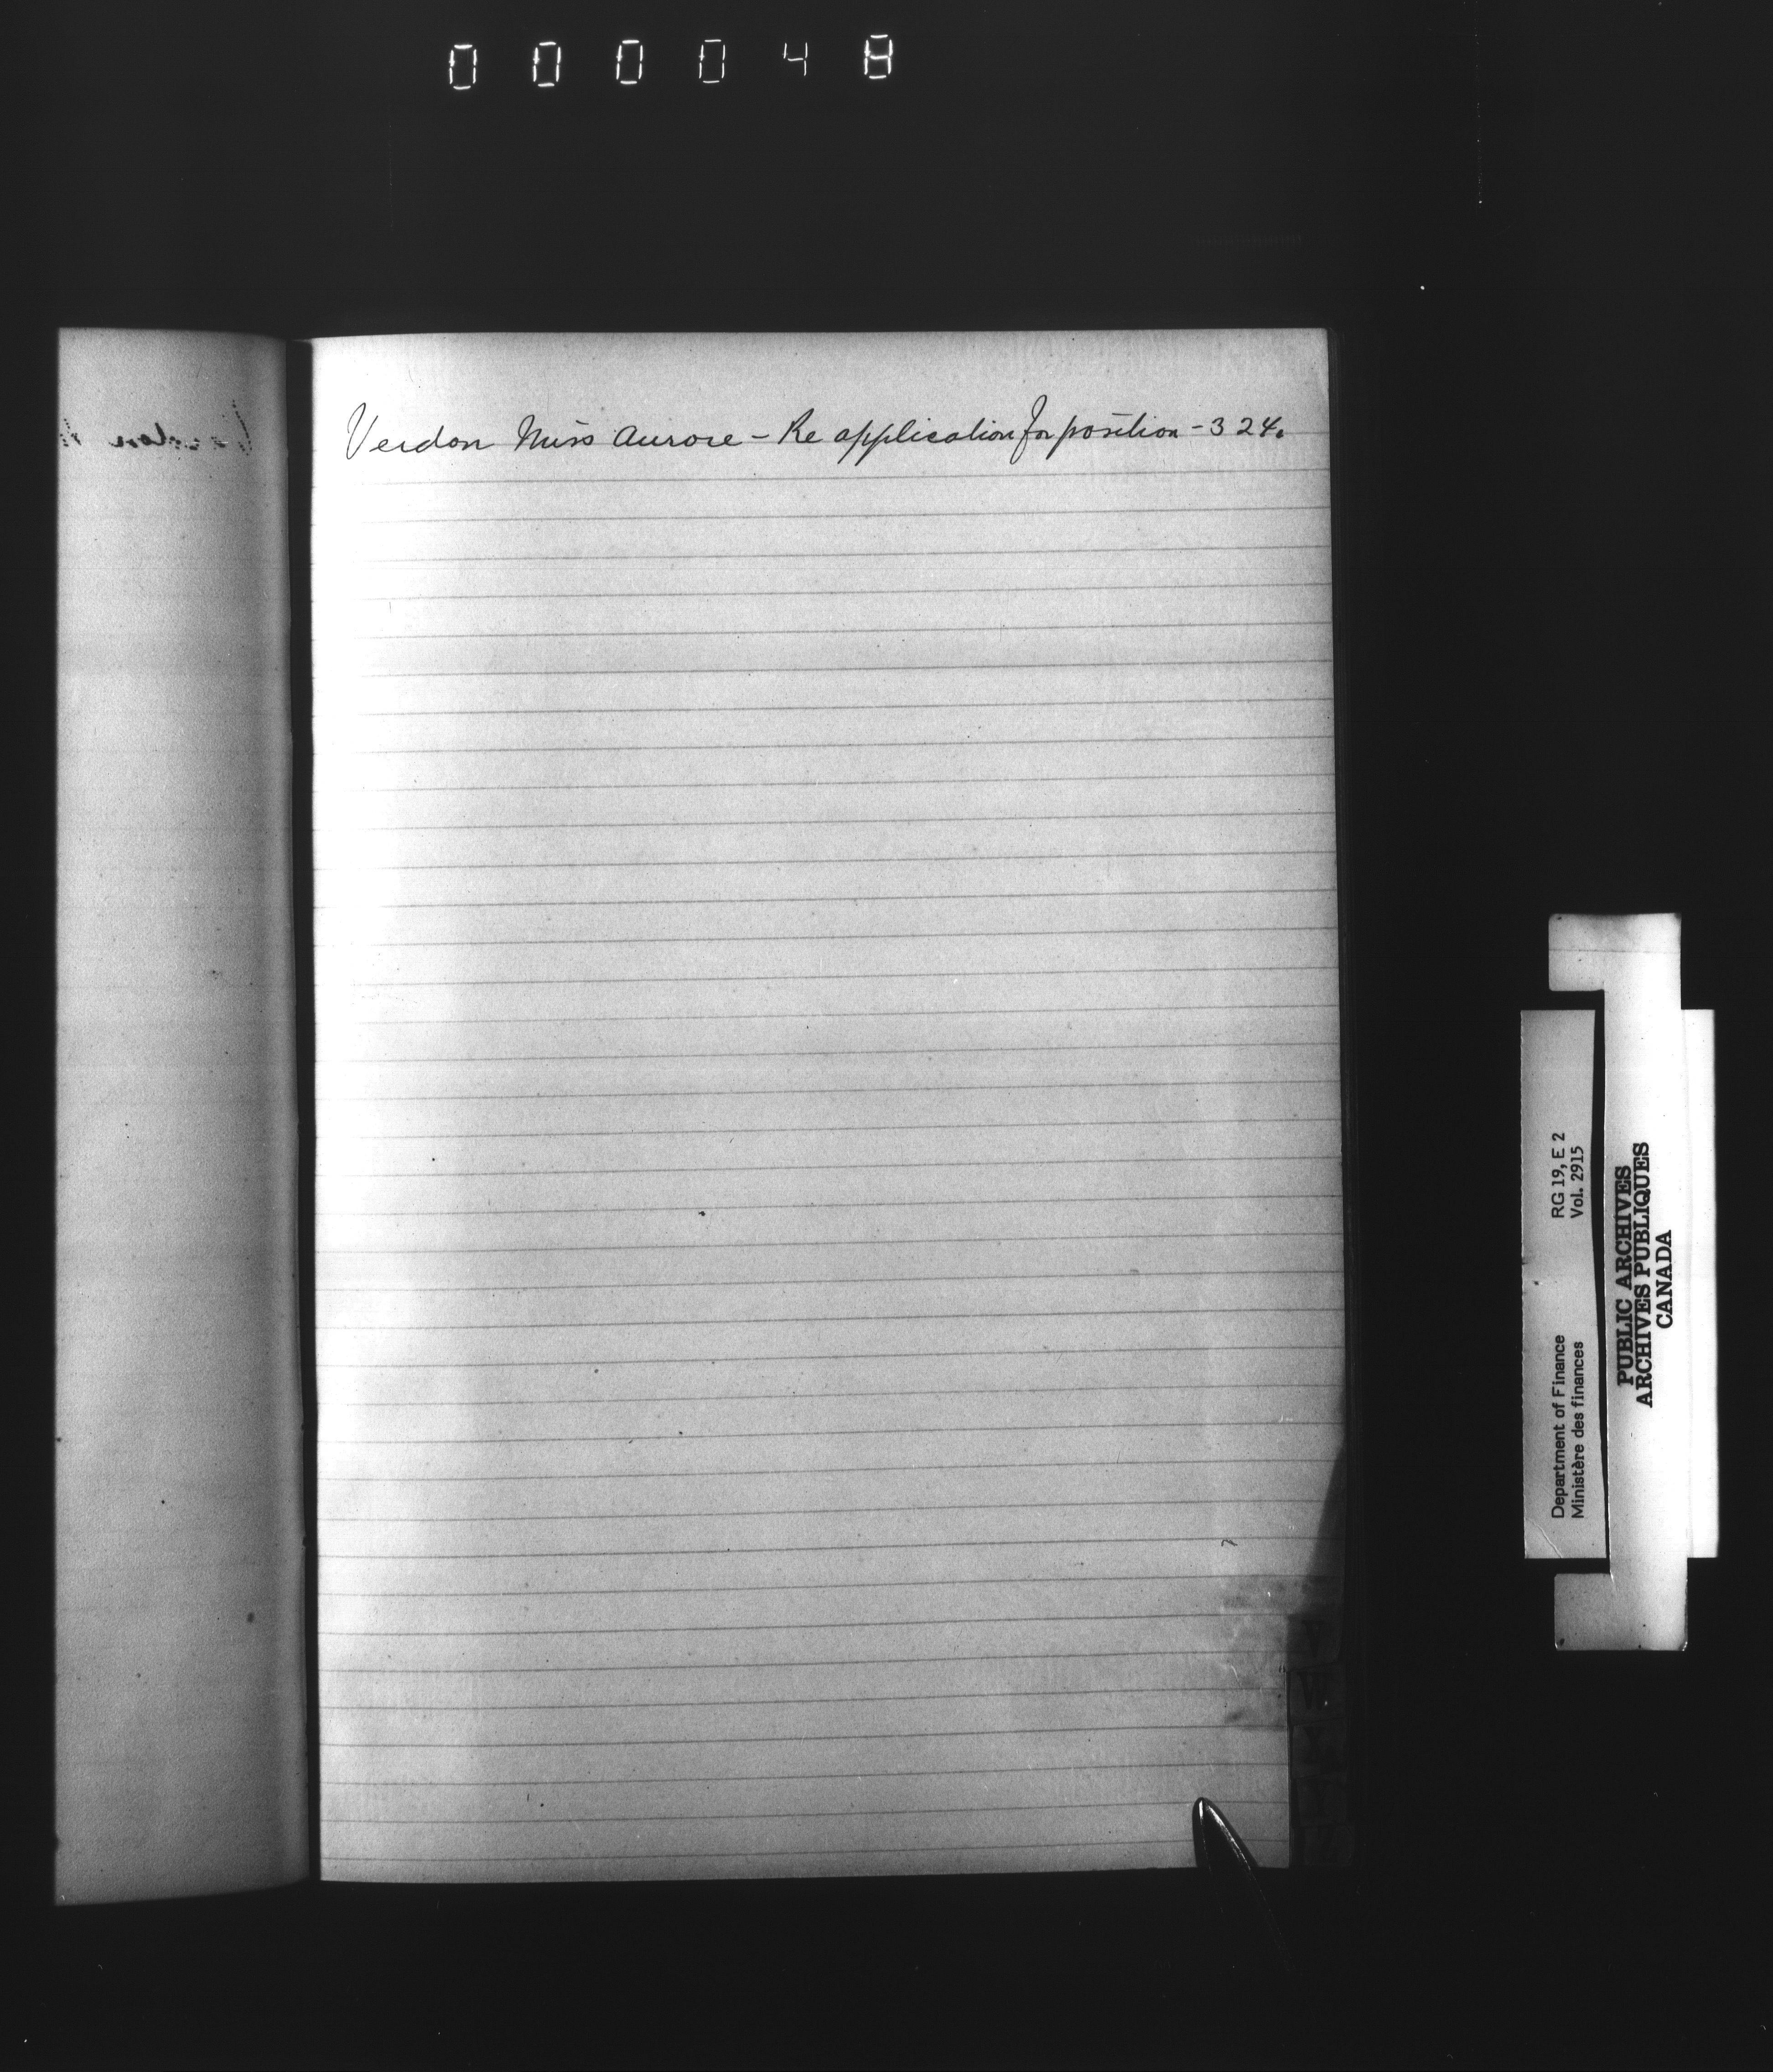 000048
Verdon Miss Aurore - Re application for position - 324.
V
W
Y
Z
Department of Finance RG 19, E 2
Ministère des finances Vol. 2915
PUBLIC ARCHIVES
ARCHIVES PUBLIQUES
CANADA